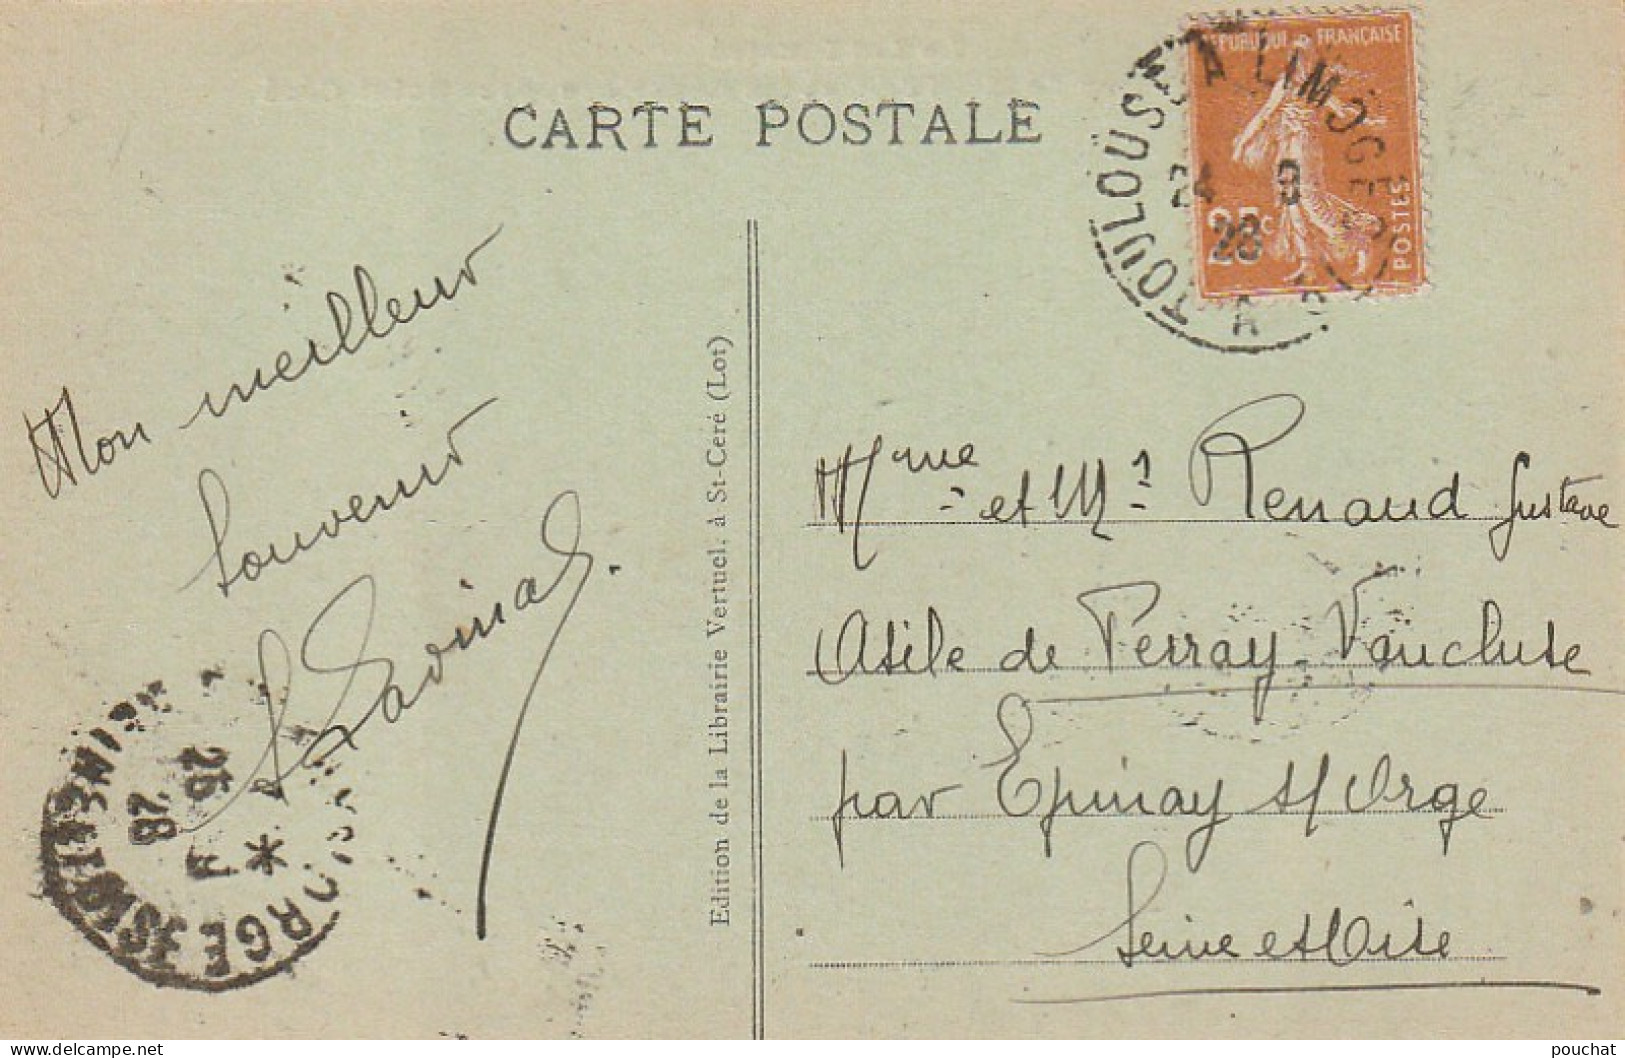 CARTE POSTALE
RÉPUBLIQUE FRANÇAISE
25c
POSTES
TOULOUSE A LIMOGES
24 8
28
Mon meilleur
Souvenir
Edition de la Librairie Vertuel, à St-Céré (Lot)
Mme et Mr Renaud Gustave
Asile de Perray-Vaucluse
par Epinay s/ Orge
Seine et Oise
SEINE ET OISE
ORGE
25
28
pouchat